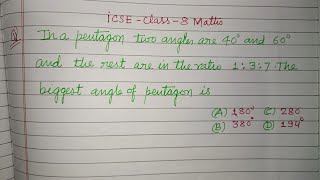 ICSE - Class - 8 Maths
Q. In a pentagon two angles are 40° and 60°
and the rest are in the ratio 1:3:7 The
biggest angle of pentagon is
(A) 180° (C) 280
(B) 380° (D) 194°